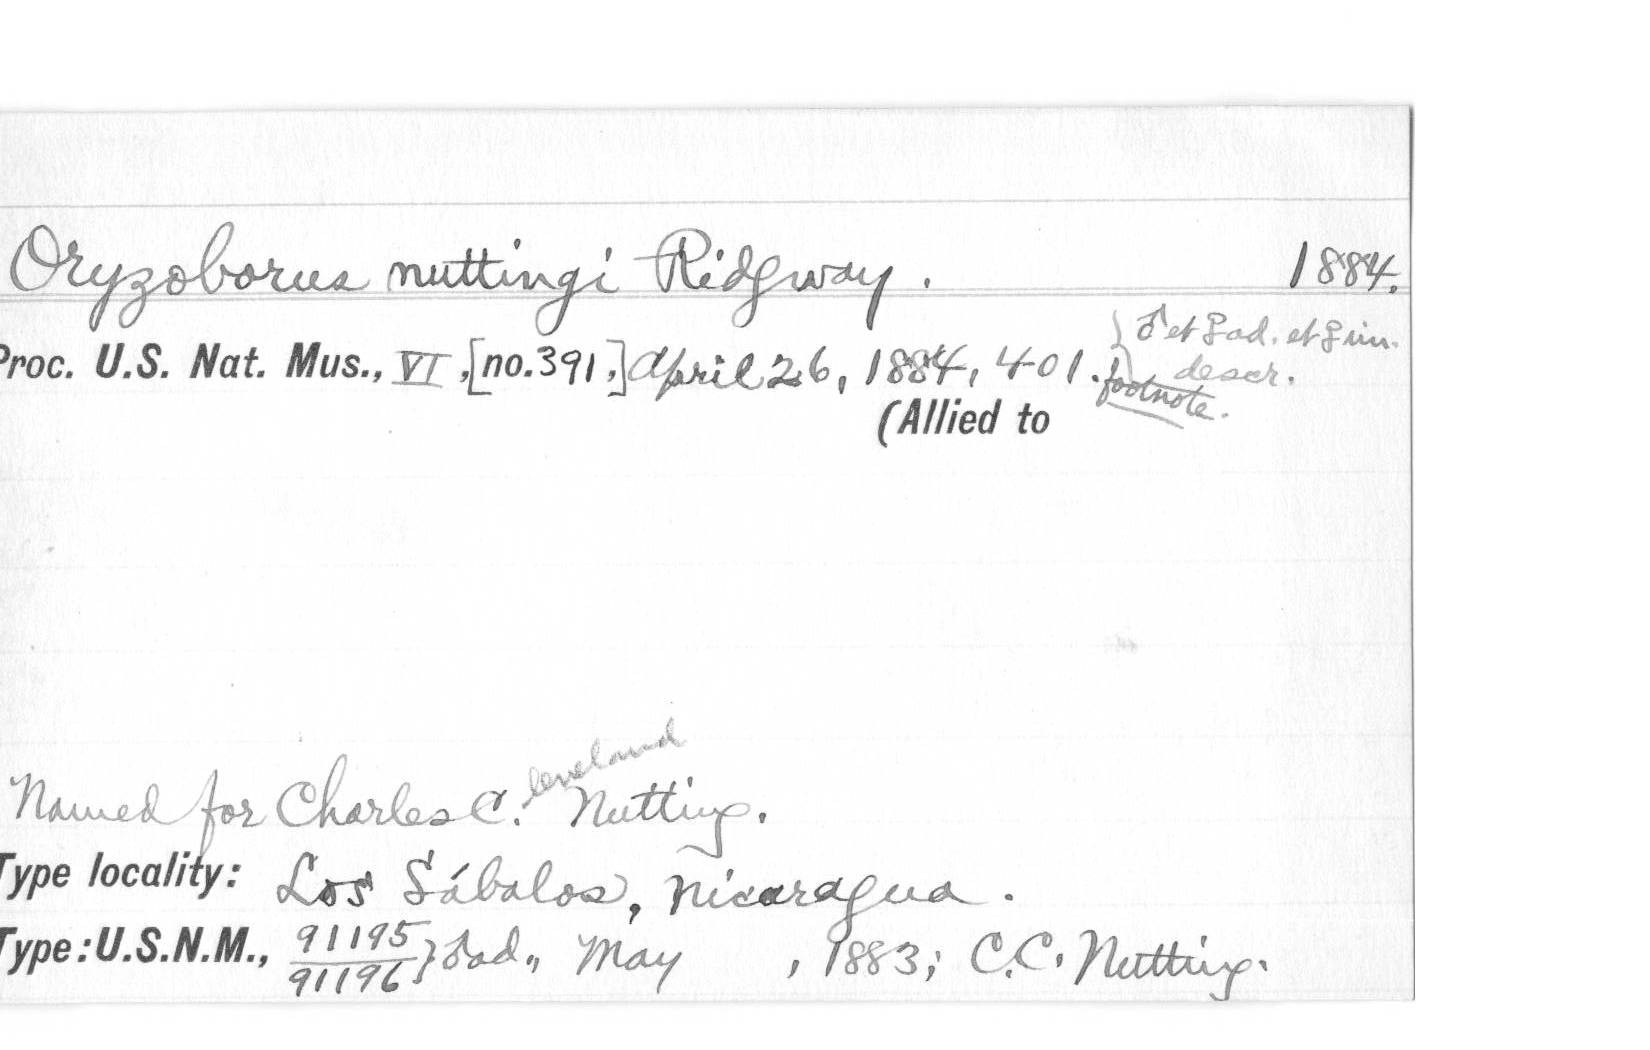 Oryzoborus nuttingi Ridgway. 1884.
Proc. U.S. Nat. Mus., VI, [no. 391,] April 26, 1884, 401. } ♂ et ♀ ad. et ♀ im.
descr.
footnote.
(Allied to
Named for Charles C. leveland Nutting.
Type locality: Los Sábalos, Nicaragua.
Type: U.S.N.M., 91195
91196 } ad., May , 1883; C.C. Nutting.